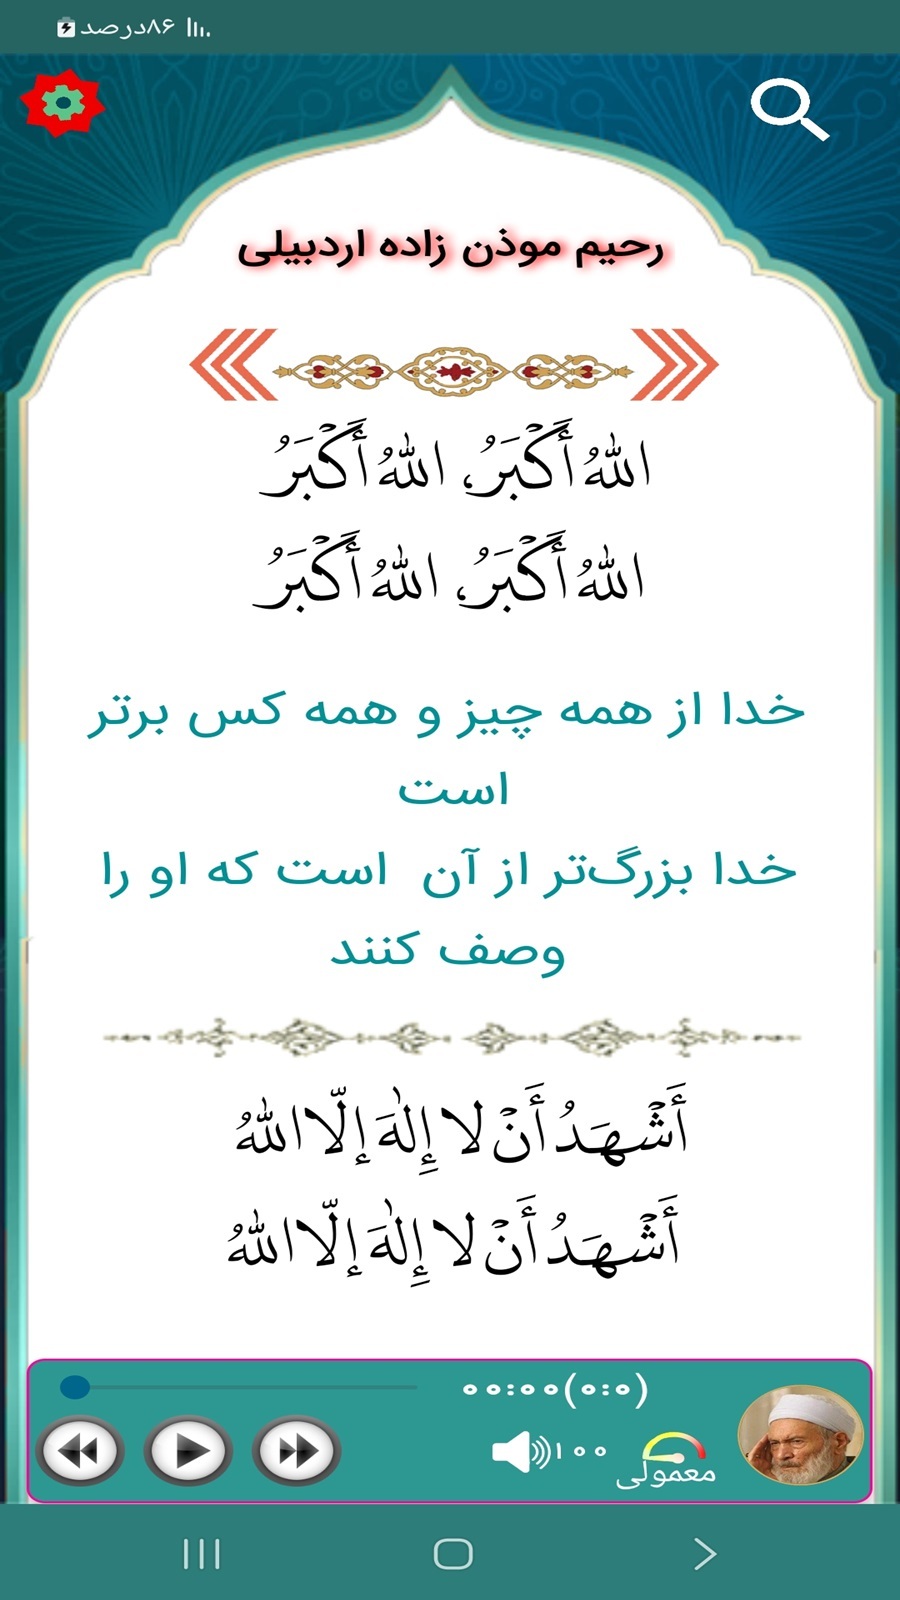 ۸۶درصد
رحیم موذن زاده اردبیلی
اللهُ أَكْبَرُ، اللهُ أَكْبَرُ
اللهُ أَكْبَرُ، اللهُ أَكْبَرُ
خدا از همه چیز و همه کس برتر
است
خدا بزرگ‌تر از آن است که او را
وصف کنند
أَشْهَدُ أَنْ لا إِلٰهَ إلّا اللهُ
أَشْهَدُ أَنْ لا إِلٰهَ إلّا اللهُ
۰۰:۰۰(۰:۰)
۱۰۰
معمولی